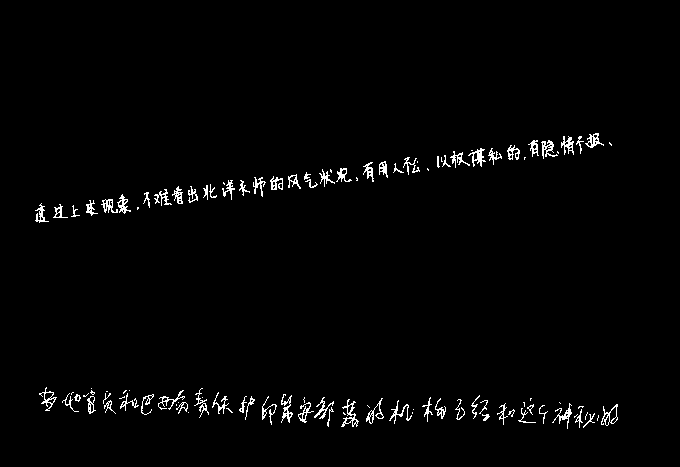 透过上述现象,不难看出北洋水师的风气状况,有用人不公、以权谋私的,有隐情不报、
当地官员和巴西负责保护印第安部落的机构已经和这个神秘的